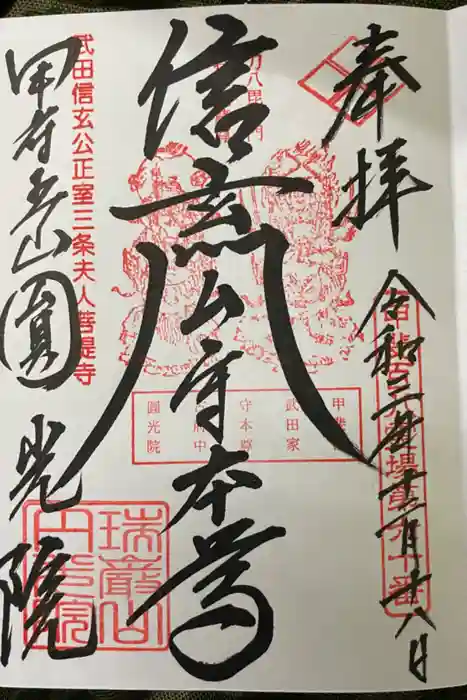 奉拝
令和三年十二月十八日
信玄公守本尊
武田信玄公正室三条夫人菩提寺
甲府五山圓光院
武田家
守本尊
府中
圓光院
瑞巌山
円光院